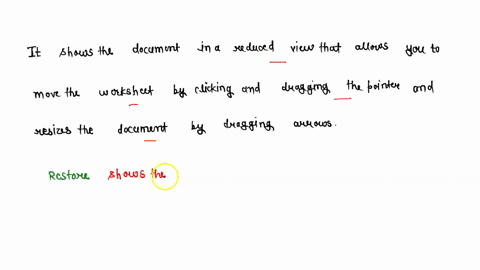 It shows the document in a reduced view that allows you to
move the worksheet by clicking and dragging the pointer and
resizes the document by dragging arrows.
Restore shows the